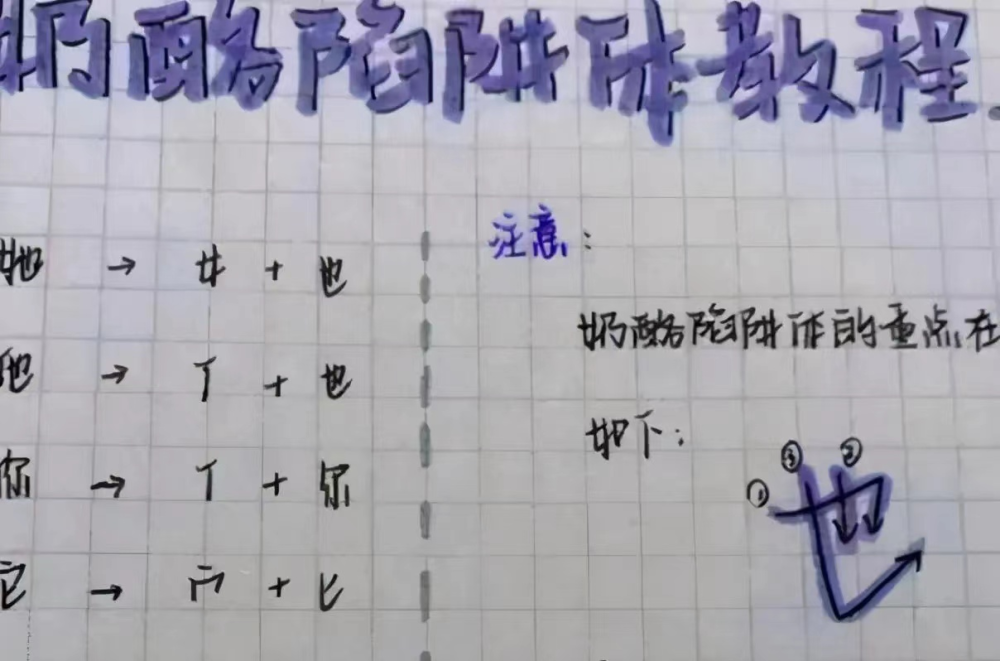 奶酪陷阱体教程
她 → 女 + 也
他 → 亻 + 也
你 → 亻 + 尔
它 → 宀 + 匕
注意:
奶酪陷阱体的重点在
如下:
① ③ ② 也